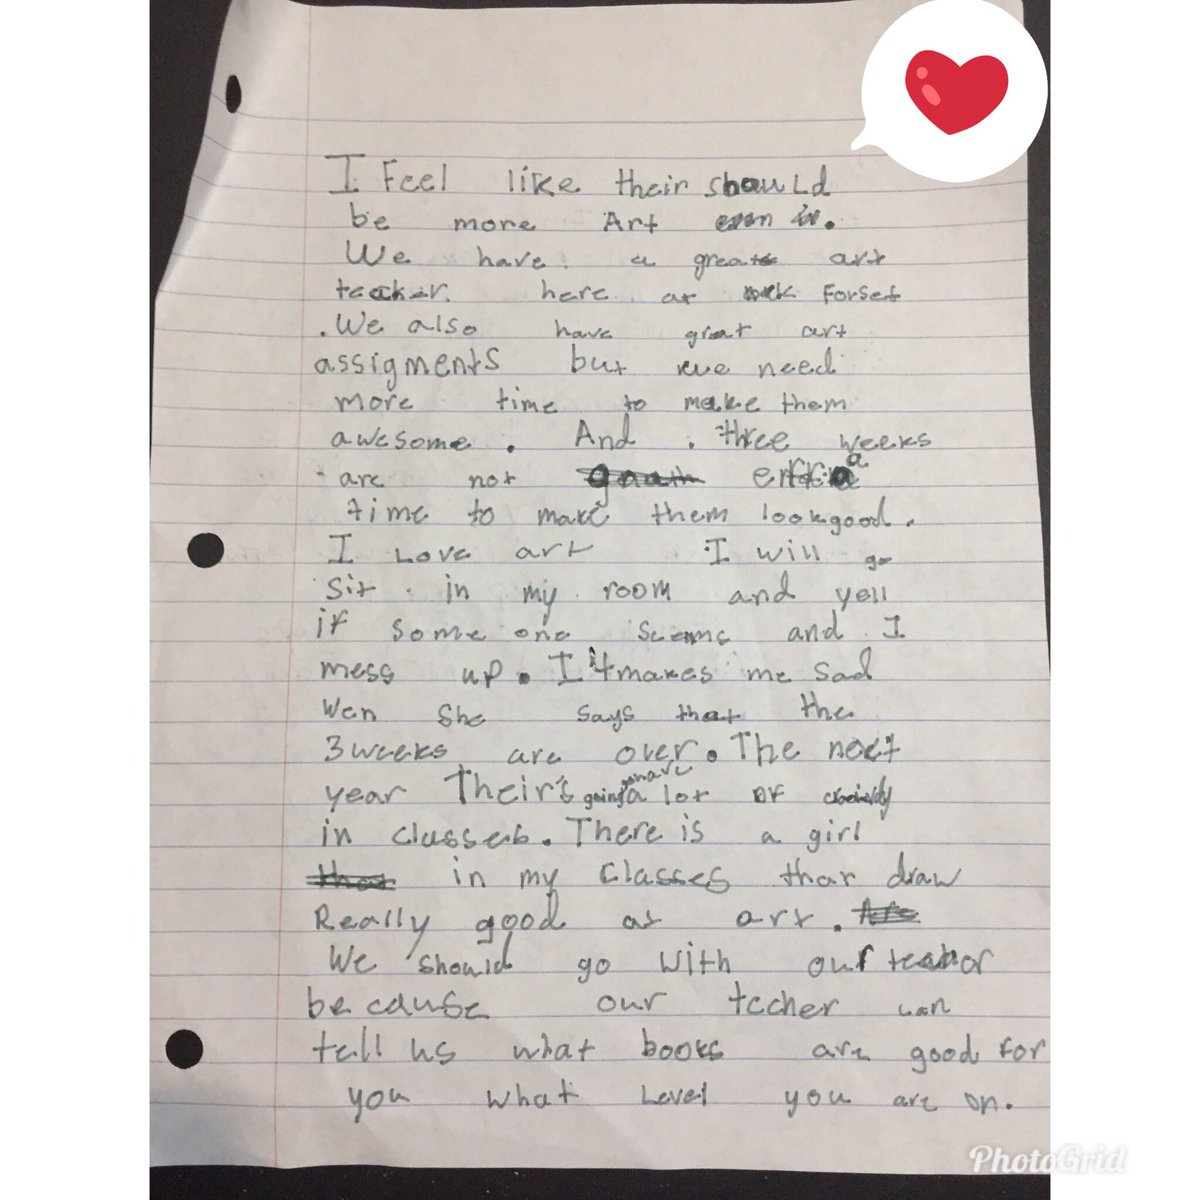 I Feel like their should
be more Art
We have a great art
teacher. here at Forset
. We also have great art
assigments but we need
more time to make them
awesome. And. three weeks
are not
time to make them look good.
I Love art I will go
sit in my room and yell
if some one and I
mess up. I it makes me sad
Wen She says that the
3 weeks are over. The next
year Their's going a lot of
in classes. There is a girl
in my Classes that draw
Really good at art.
We should go with our
because our techer can
tell us what books are good for
you what Level you are on.
PhotoGrid